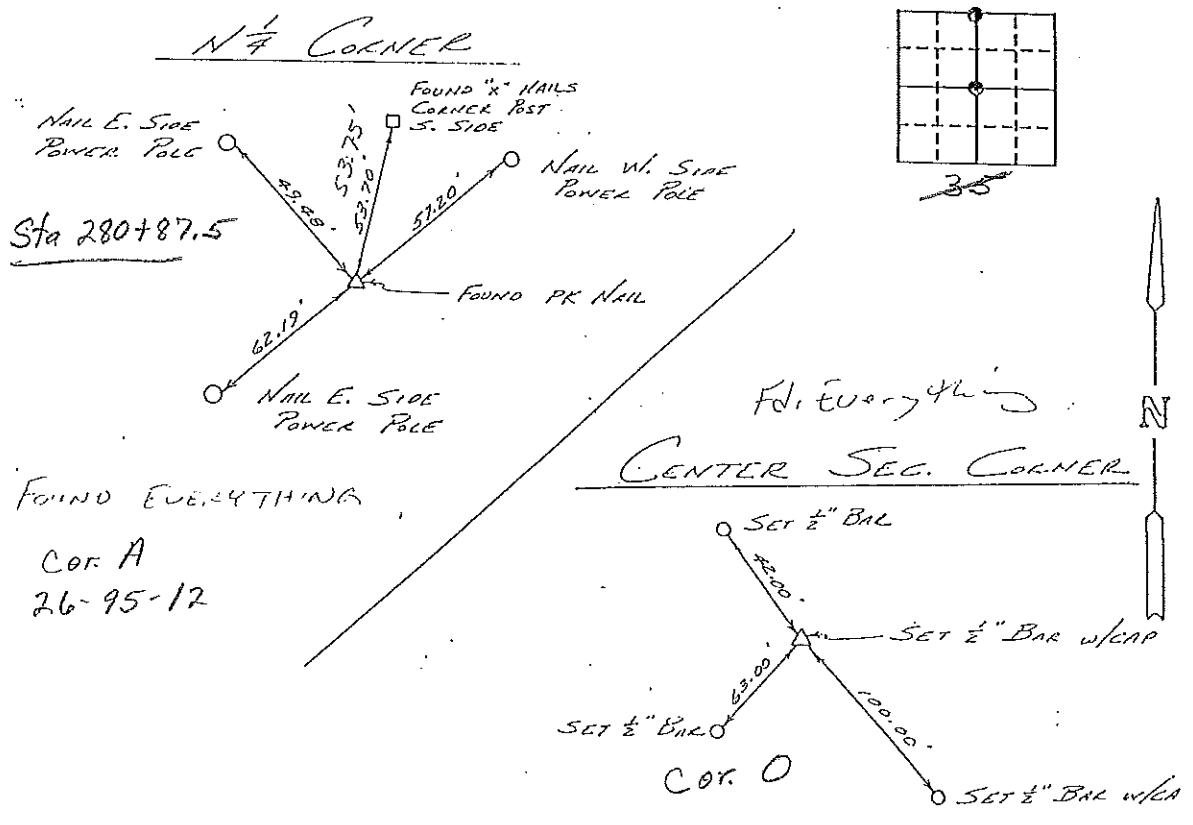 N 1/4 CORNER
FOUND "X" NAILS
CORNER POST
S. SIDE
NAIL E. SIDE
POWER POLE
NAIL W. SIDE
POWER POLE
49.48'
53.75'
53.70'
57.20'
35
Sta 280+87.5
FOUND PK NAIL
62.19'
NAIL E. SIDE
POWER POLE
Fd. Everything
N
CENTER SEC. CORNER
FOUND EVERYTHING
Cor. A
26-95-12
SET 1/2" BAR
42.00'
SET 1/2" BAR W/CAP
63.00'
100.00'
SET 1/2" BAR
Cor. O
SET 1/2" BAR W/CA